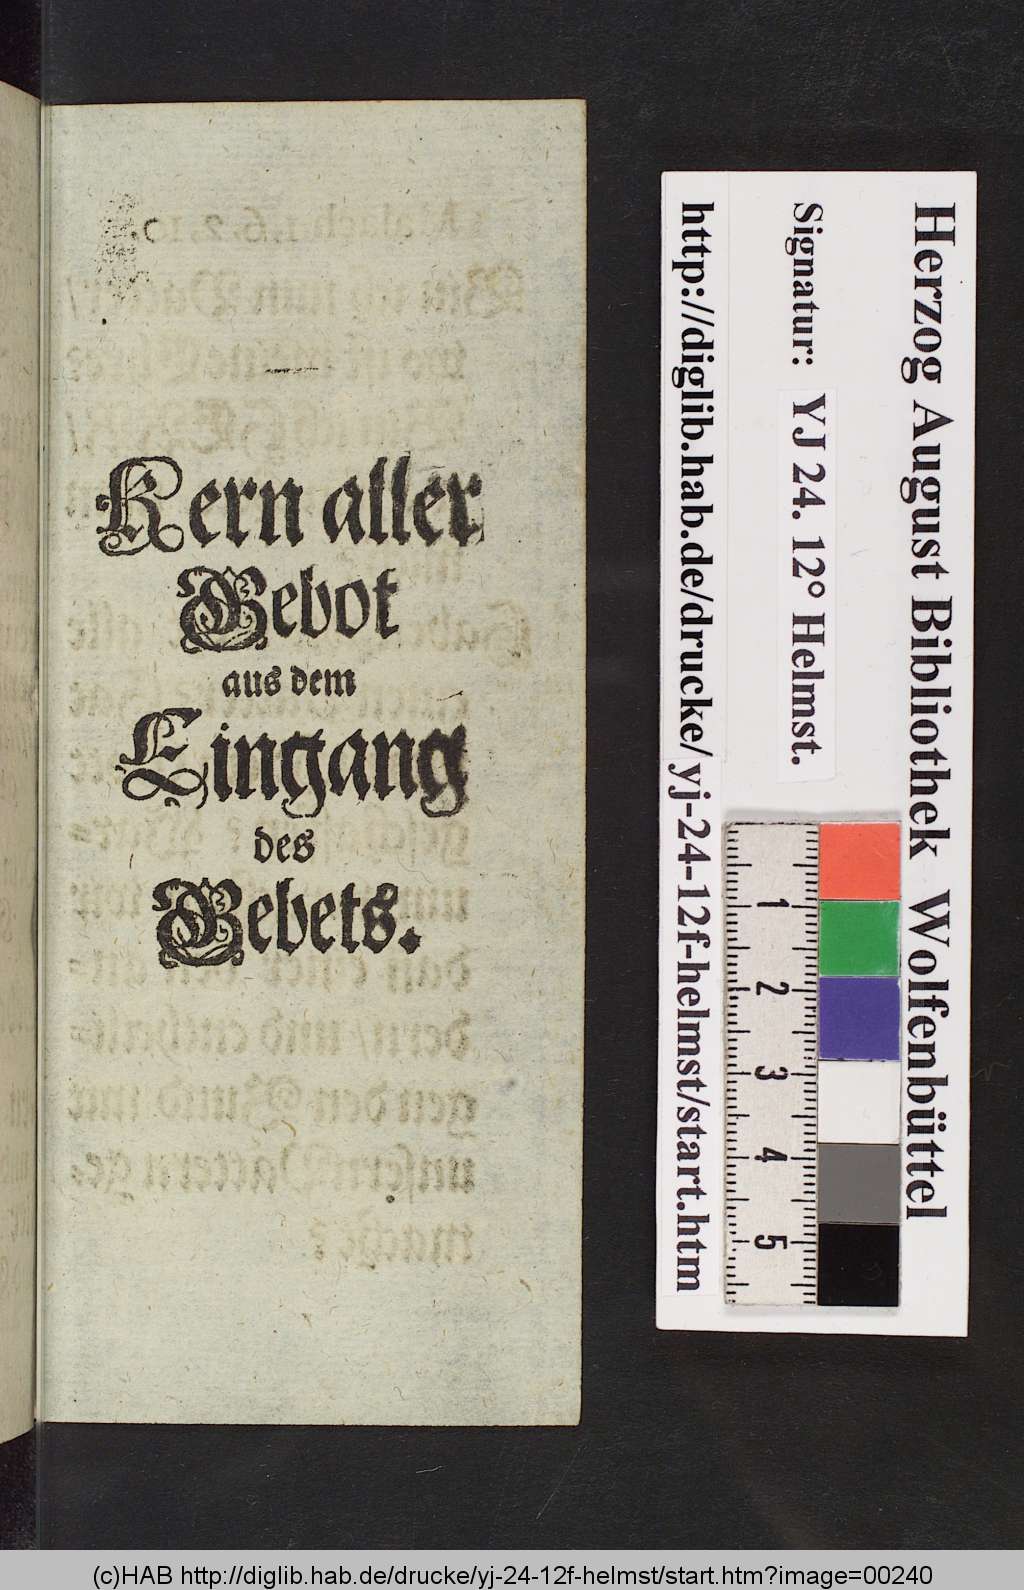 Kern aller
Gebot
aus dem
Eingang
des
Gebets.
Herzog August Bibliothek Wolfenbüttel
Signatur: YJ 24. 12° Helmst.
http://diglib.hab.de/drucke/yj-24-12f-helmst/start.htm
1
2
3
4
5
(c)HAB http://diglib.hab.de/drucke/yj-24-12f-helmst/start.htm?image=00240